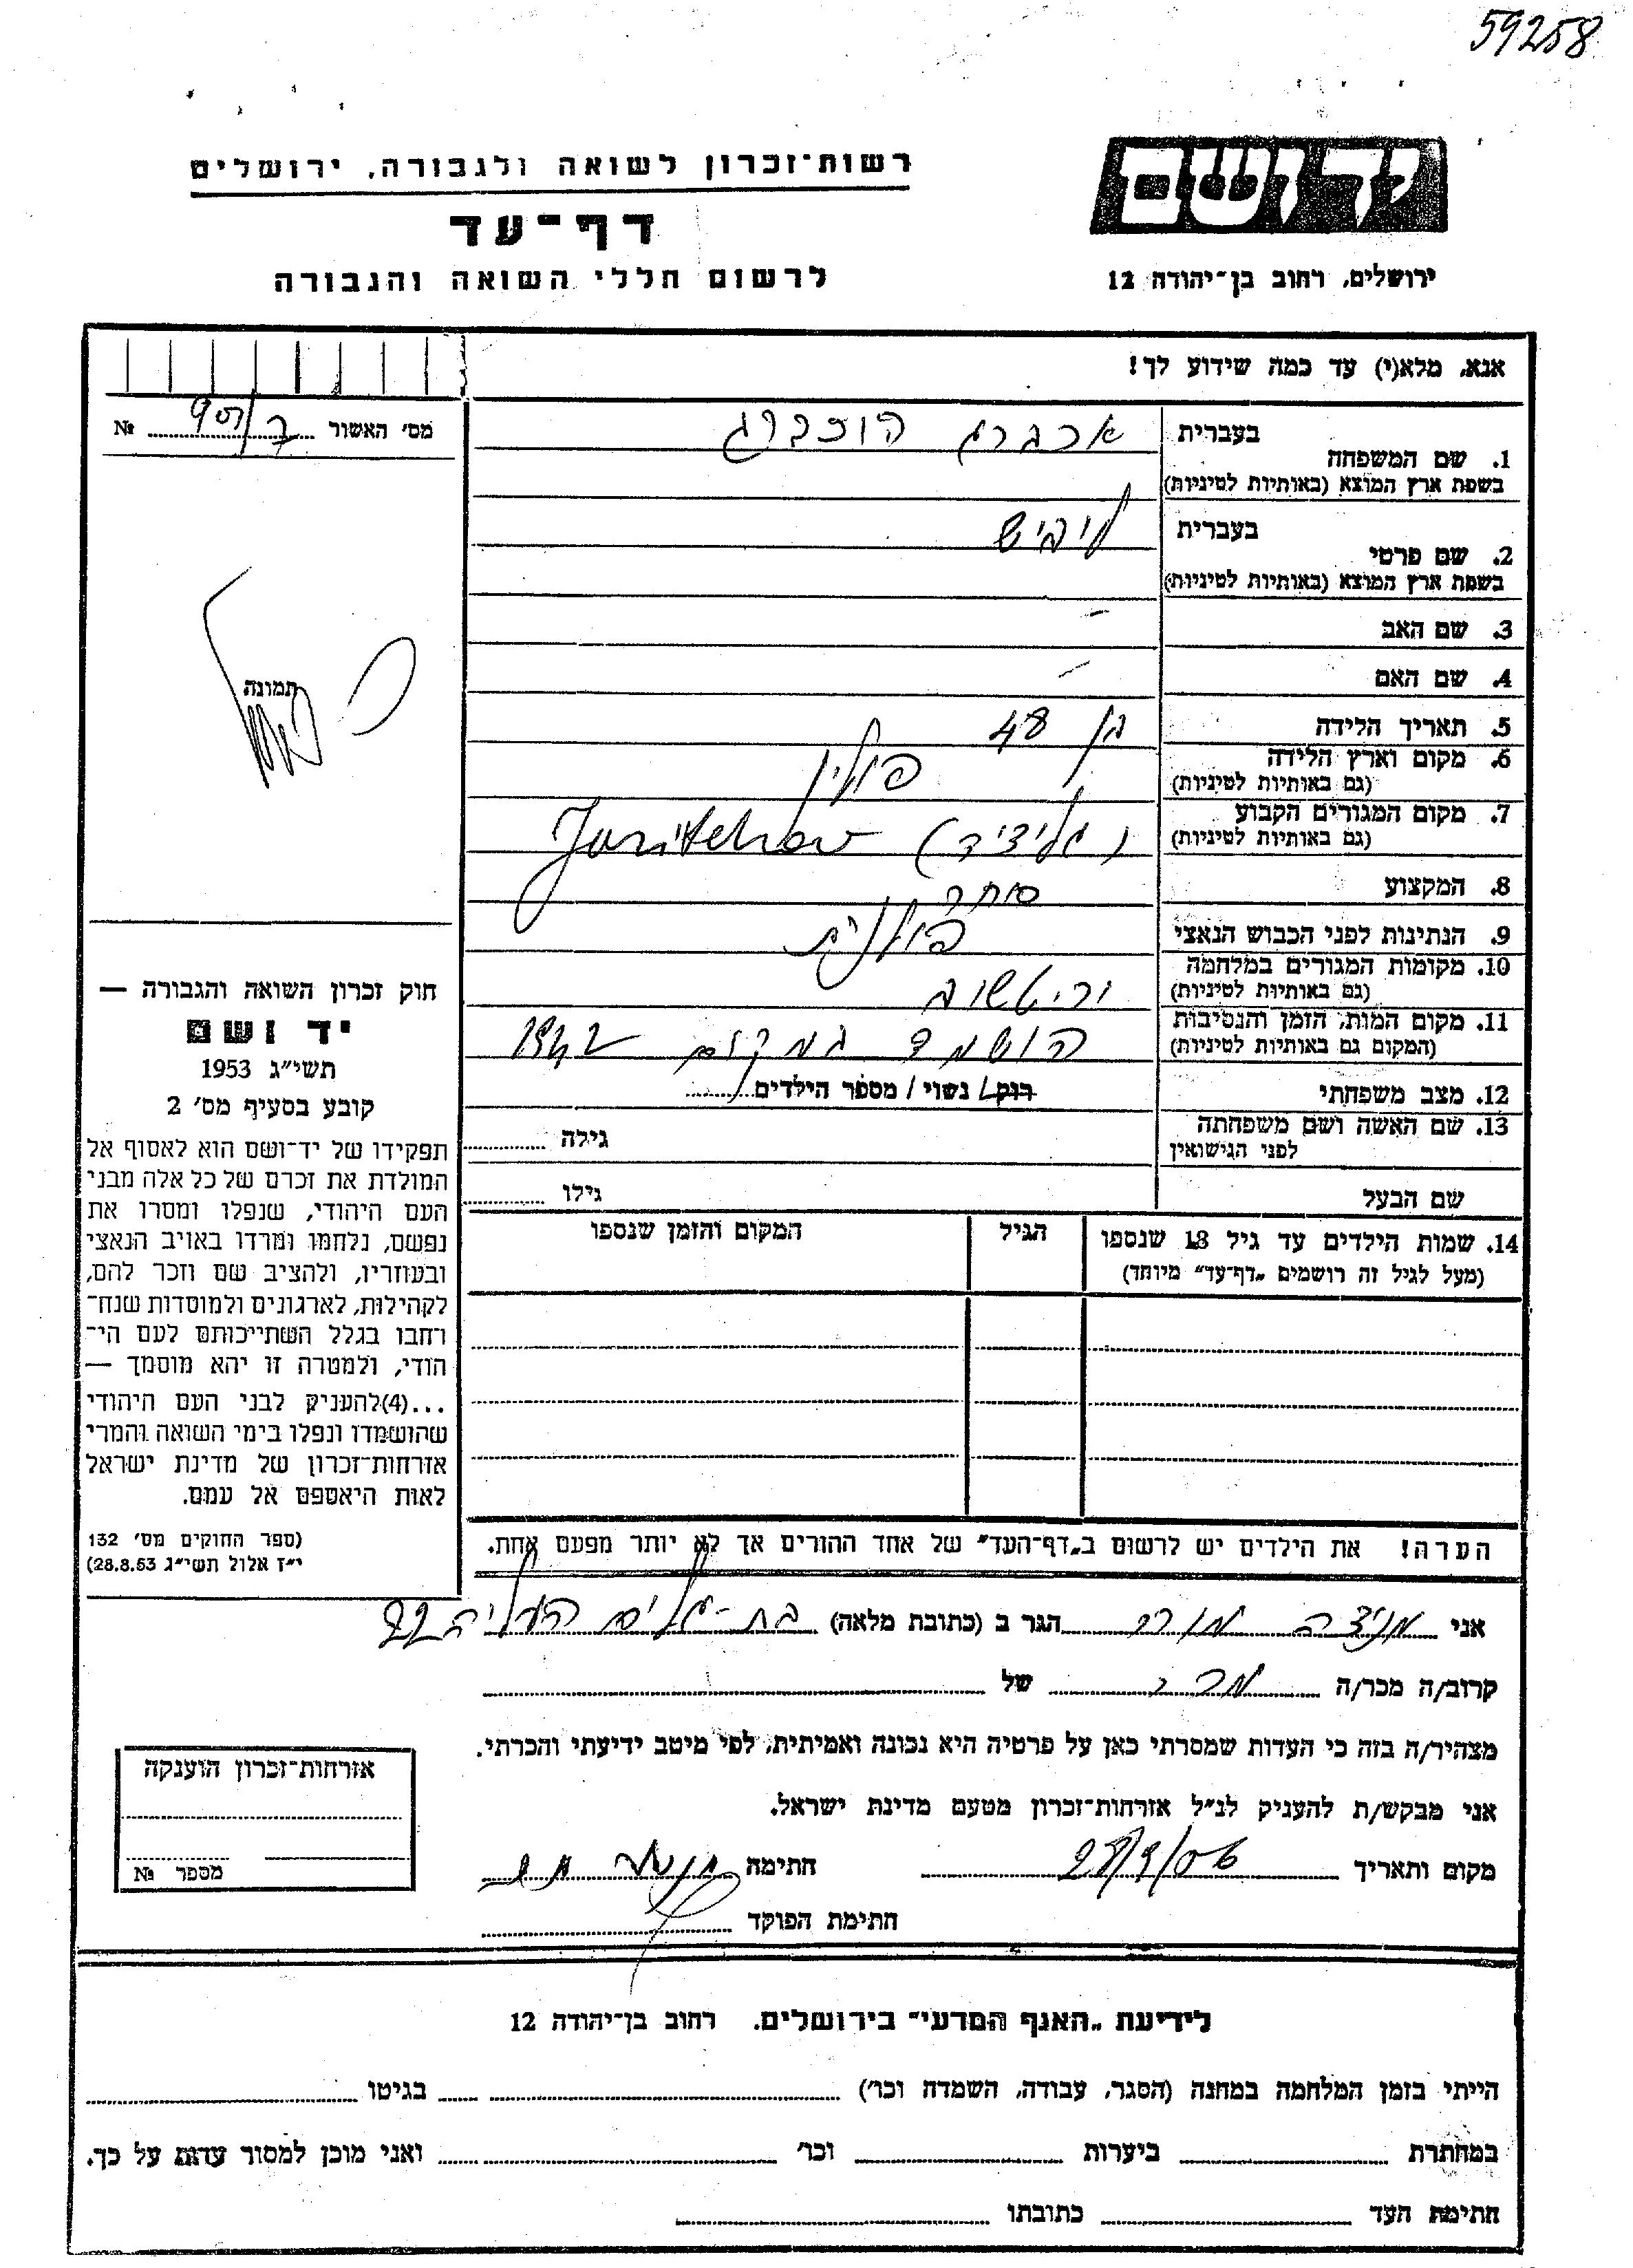 59258
יד ושם
רשות־זכרון לשואה ולגבורה, ירושלים
דף־עד
לרשום חללי השואה והגבורה
ירושלים, רחוב בן־יהודה 12
אנא, מלא(י) עד כמה שידוע לך!
מס׳ האשור № 907/ד
בעברית
1. שם המשפחה
בשפת ארץ המוצא (באותיות לטיניות)
בעברית לייביש
2. שם פרטי
בשפת ארץ המוצא (באותיות לטיניות)
3. שם האב –
4. שם האם –
5. תאריך הלידה בן 48
6. מקום וארץ הלידה פולין
(גם באותיות לטיניות)
7. מקום המגורים הקבוע (גליציה) Jaritchow
(גם באותיות לטיניות)
8. המקצוע סוחר
9. הנתינות לפני הכבוש הנאצי פולנית
10. מקומות המגורים במלחמה
(גם באותיות לטיניות)
11. מקום המות, הזמן והנסיבות הושמד במקום 1942
(המקום גם באותיות לטיניות)
12. מצב משפחתי רוק/ נשוי / מספר הילדים
13. שם האשה ושם משפחתה גילה
לפני הנישואין
שם הבעל גילו
14. שמות הילדים עד גיל 18 שנספו הגיל המקום והזמן שנספו
(מעל לגיל זה רושמים „דף־עד״ מיוחד)
הערה! את הילדים יש לרשום ב„דף־העד״ של אחד ההורים אך לא יותר מפעם אחת.
תמונה
חוק זכרון השואה והגבורה —
יד ושם
תשי״ג 1953
קובע בסעיף מס׳ 2
תפקידו של יד־ושם הוא לאסוף אל
המולדת את זכרם של כל אלה מבני
העם היהודי, שנפלו ומסרו את
נפשם, נלחמו ומרדו באויב הנאצי
ובעוזריו, ולהציב שם וזכר להם,
לקהילות, לארגונים ולמוסדות שנח־
רחבו בגלל השתייכותם לעם הי־
הודי, ולמטרה זו יהא מוסמך —
...(4)להעניק לבני העם היהודי
שהושמדו ונפלו בימי השואה והמרי
אזרחות־זכרון של מדינת ישראל
לאות היאספם אל עמם.
(ספר החוקים מס׳ 132
י״ז אלול תשי״ג 28.8.53)
אני הגר ב (כתובת מלאה) בת-גלים העליה 22
קרוב/ה מכר/ה מכר של
מצהיר/ה בזה כי העדות שמסרתי כאן על פרטיה היא נכונה ואמיתית, לפי מיטב ידיעתי והכרתי.
אני מבקש/ת להעניק לנ״ל אזרחות־זכרון מטעם מדינת ישראל.
מקום ותאריך חתימה
חתימת הפוקד
אזרחות־זכרון הוענקה
מספר №
לידיעת „האגף המדעי״ בירושלים. רחוב בן־יהודה 12
הייתי בזמן המלחמה במחנה (הסגר, עבודה, השמדה וכו׳) בגיטו
במחתרת ביערות וכו׳ ואני מוכן למסור עדות על כך.
חתימת העד כתובתו